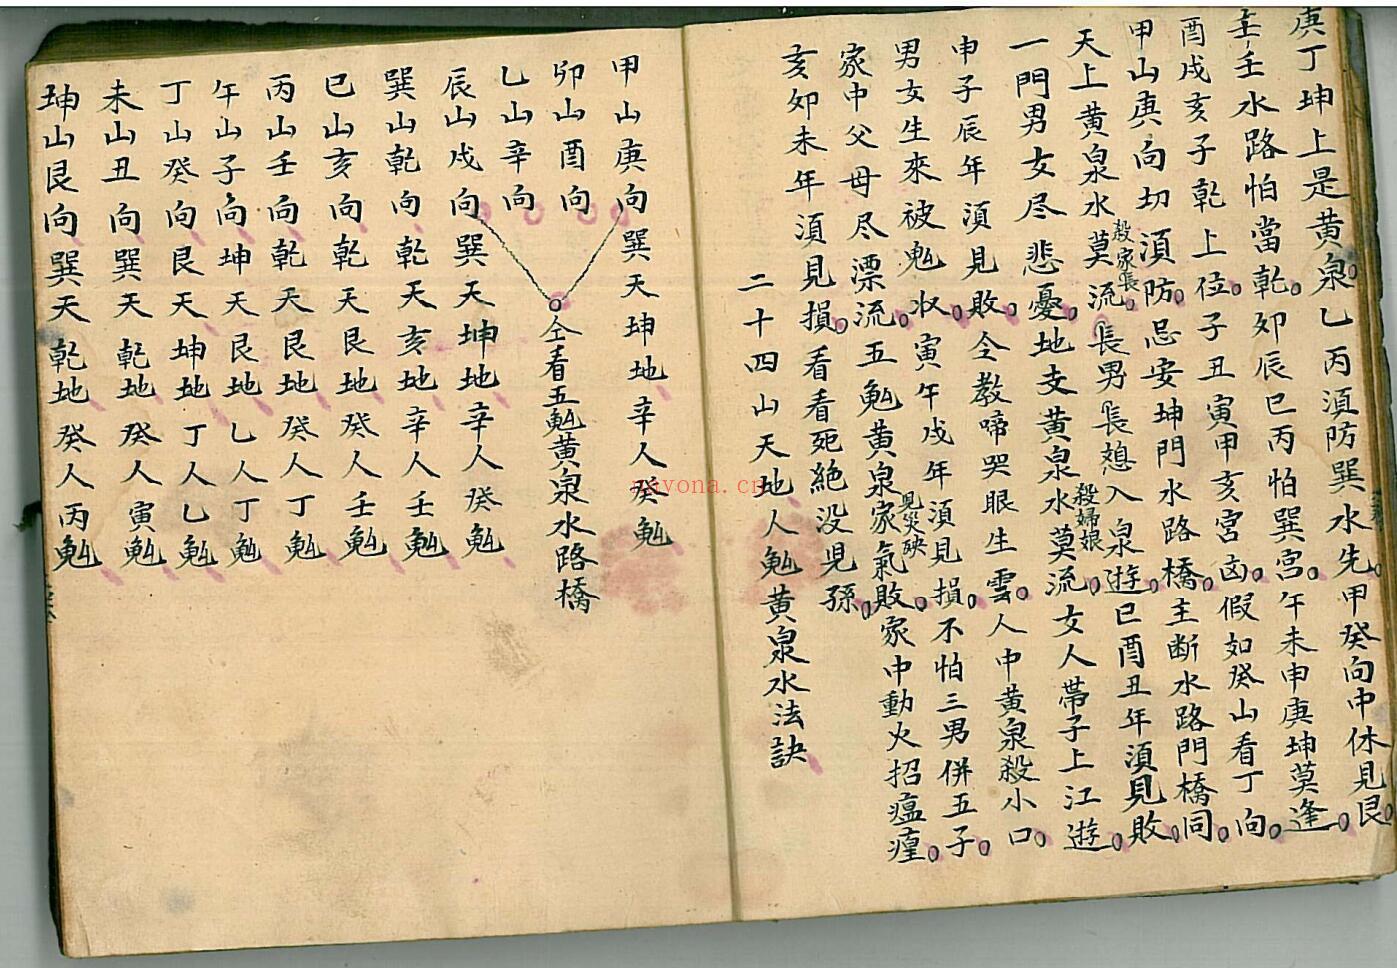 庚丁坤上是黃泉。乙丙須防巽水先。甲癸向中休見艮。
辛壬水路怕當乾。卯辰巳丙怕巽宮。午未申庚坤莫逢。
酉戌亥子乾上位。子丑寅甲亥宮凶。假如癸山看丁向。
甲山庚向切須防。忌安坤門水路橋。主断水路門橋同。
天上黃泉水莫流。殺家長。長男長媳入泉遊。巳酉丑年須見敗。
一門男女尽悲憂。地支黃泉水莫流。殺婦娘 女人帶子上江遊。
申子辰年須見敗。今教啼哭眼生雲。人中黃泉殺小口。
男女生來被鬼收。寅午戌年須見損。不怕三男併五子。
家中父母尽漂流。五鬼黃泉家氣敗。見災殃 家中動火招瘟瘟。
亥卯未年須見損。看看死絕没兒孫。
二十四山天地人鬼黃泉水法訣
甲山庚向巽天坤地辛人癸鬼
卯山酉向
仝看五鬼黃泉水路橋
乙山辛向
辰山戌向巽天坤地辛人癸鬼
巽山乾向乾天亥地辛人壬鬼
巳山亥向乾天艮地癸人壬鬼
丙山壬向乾天艮地癸人丁鬼
午山子向坤天艮地乙人丁鬼
丁山癸向艮天坤地丁人乙鬼
未山丑向巽天乾地癸人寅鬼
坤山艮向巽天乾地癸人丙鬼
nayona.cn